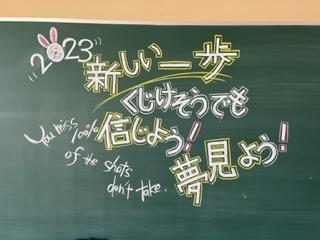 2023
新しい一歩
くじけそうでも
信じよう!
夢見よう!
You miss 100%
of the shots
don't take.